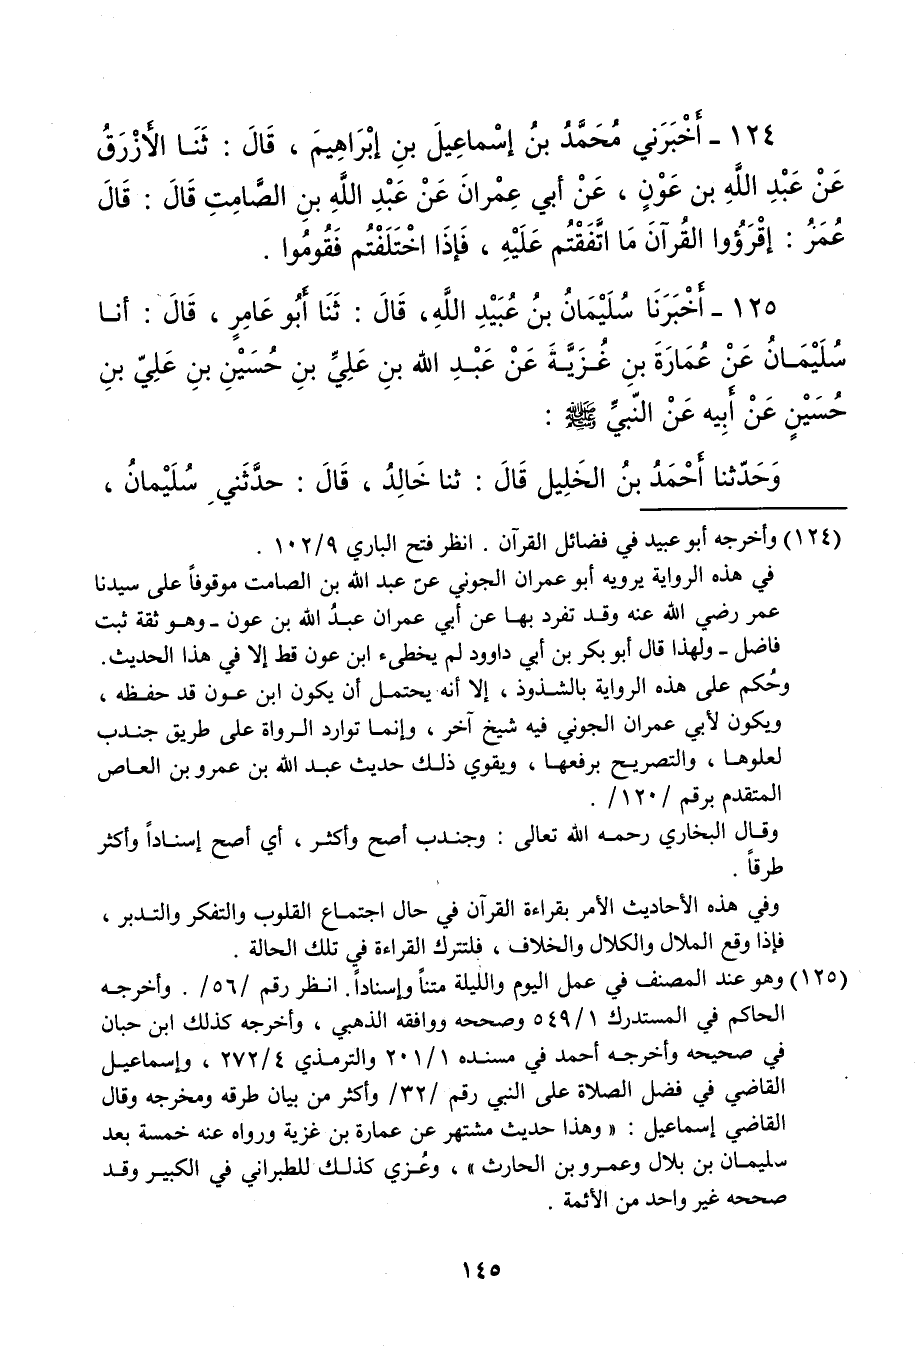 ١٢٤ ـ أَخْبَرَني مُحَمَّدُ بنُ إسْماعِيلَ بنِ إبْرَاهِيمَ ، قَالَ : ثَنَـا الأَزْرَقُ
عَنْ عَبْدِ اللَّهِ بن عَوْنٍ ، عَنْ أبي عِمْرانَ عَنْ عَبْدِ اللَّهِ بنِ الصَّامِتِ قَالَ : قَالَ
عُمَرُ : إقْرَؤُوا القُرآنَ مَا اتَّفَقْتُم عَلَيْهِ ، فَإذَا اخْتَلَفْتُم فَقُومُوا .
١٢٥ ـ أَخْبَرَنَا سُلَيْمَانُ بنُ عُبَيْدِ اللَّهِ، قَالَ : ثَنَا أَبُو عَامِرٍ ، قَالَ : أنـا
سُلَيْمَـانُ عَنْ عُمَارَةَ بنِ غُـزَيَّـةَ عَنْ عَبْـدِ الله بنِ عَلِيِّ بنِ حُسَيْنِ بنِ عَليّ بنِ
حُسَيْنٍ عَنْ أَبِيه عَنْ النّبيِّ ﷺ :
وَحَدّثنا أَحْمَدُ بنُ الخَلِيل قَالَ : ثنا خَالِدُ ، قَالَ : حدَّثَني سُلَيْمانُ ،
(١٢٤) وأخرجه أبو عبيد في فضائل القرآن . انظر فتح الباري ١٠٢/٩ .
في هذه الرواية يرويه أبو عمران الجوني عن عبد الله بن الصامت موقوفاً على سيدنا
عمر رضي الله عنه وقـد تفرد بهـا عن أبي عمران عبـدُ الله بن عون ـ وهـو ثقة ثبت
فاضل ـ ولهذا قال أبو بكر بن أبي داوود لم يخطىء ابن عون قط إلا في هذا الحديث.
وحُكم على هذه الرواية بالشذوذ ، إلا أنه يحتمـل أن يكون ابن عـون قد حفـظه ،
ويكون لأبي عمران الجوني فيه شيخ آخر ، وإنمـا توارد الـرواة على طريق جنـدب
لعلوهـا ، والتصريـح برفعهـا ، ويقوي ذلـك حديث عبـد الله بن عمرو بن العـاص
المتقدم برقم /١٢٠/ .
وقـال البخاري رحمـه الله تعالى : وجنـدب أصح وأكثـر ، أي أصح إسنـاداً وأكثر
طرقاً .
وفي هذه الأحاديث الأمر بقراءة القرآن في حال اجتمـاع القلوب والتفكر والتـدبر ،
فإذا وقع الملال والكلال والخلاف ، فلتترك القراءة في تلك الحالة .
(١٢٥) وهو عند المصنف في عمل اليوم والليلة متناً وإسناداً. انـظر رقم /٥٦/ . وأخرجـه
الحاكم في المستدرك ٥٤٩/١ وصححه ووافقه الذهبي ، وأخرجه كذلك ابن حبان
في صحيحه وأخرجـه أحمد في مسنده ٢٠١/١ والترمـذي ٢٧٢/٤ ، وإسماعيـل
القاضي في فضل الصلاة على النبي رقم /٣٢/ وأكثر من بيان طرقه ومخرجه وقال
القاضي إسماعيل : « وهذا حديث مشتهر عن عمارة بن غزية ورواه عنه خمسة بعد
سليمـان بن بلال وعمـرو بن الحارث » ، وعُـزي كذلـك للطبراني في الكبيـر وقـد
صححه غير واحد من الأئمة .
١٤٥